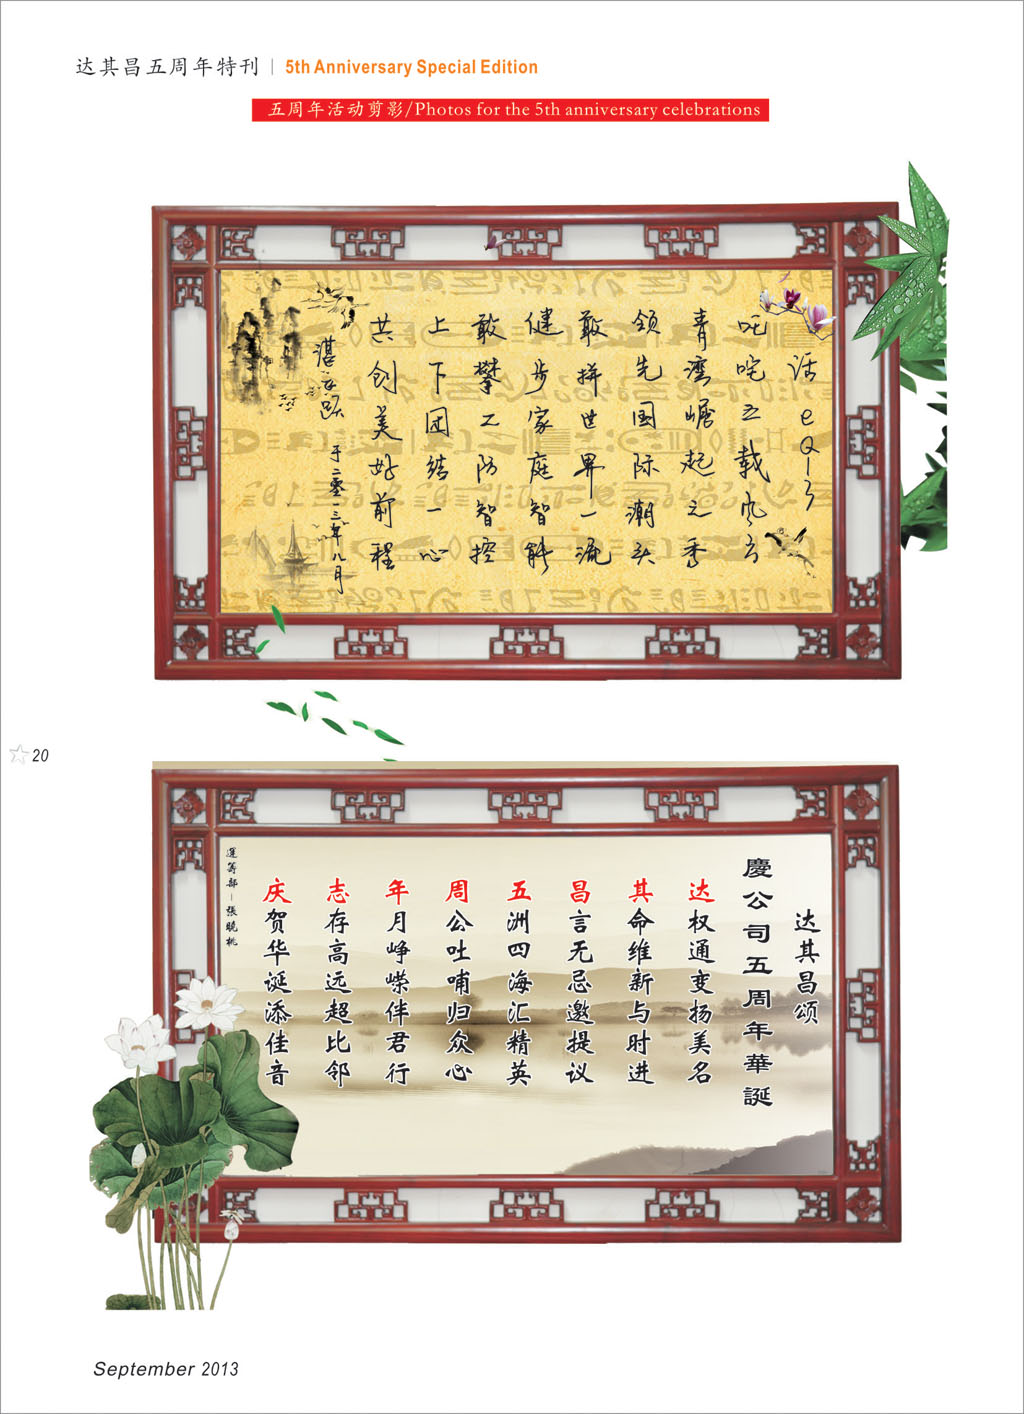 达其昌五周年特刊 | 5th Anniversary Special Edition
五周年活动剪影/Photos for the 5th anniversary celebrations
话 eQ-3
叱咤五载风云
青湾崛起之秀
领先国际潮头
敢拼世界一流
健步家庭智能
敢攀工防智控
上下团结一心
共创美好前程
湛跃
于二零一三年八月
20
达其昌颂
慶公司五周年華誕
达权通变扬美名
其命维新与时进
昌言无忌邀提议
五洲四海汇精英
周公吐哺归众心
年月峥嵘伴君行
志存高远超比邻
庆贺华诞添佳音
運籌部－張曉桃
September 2013